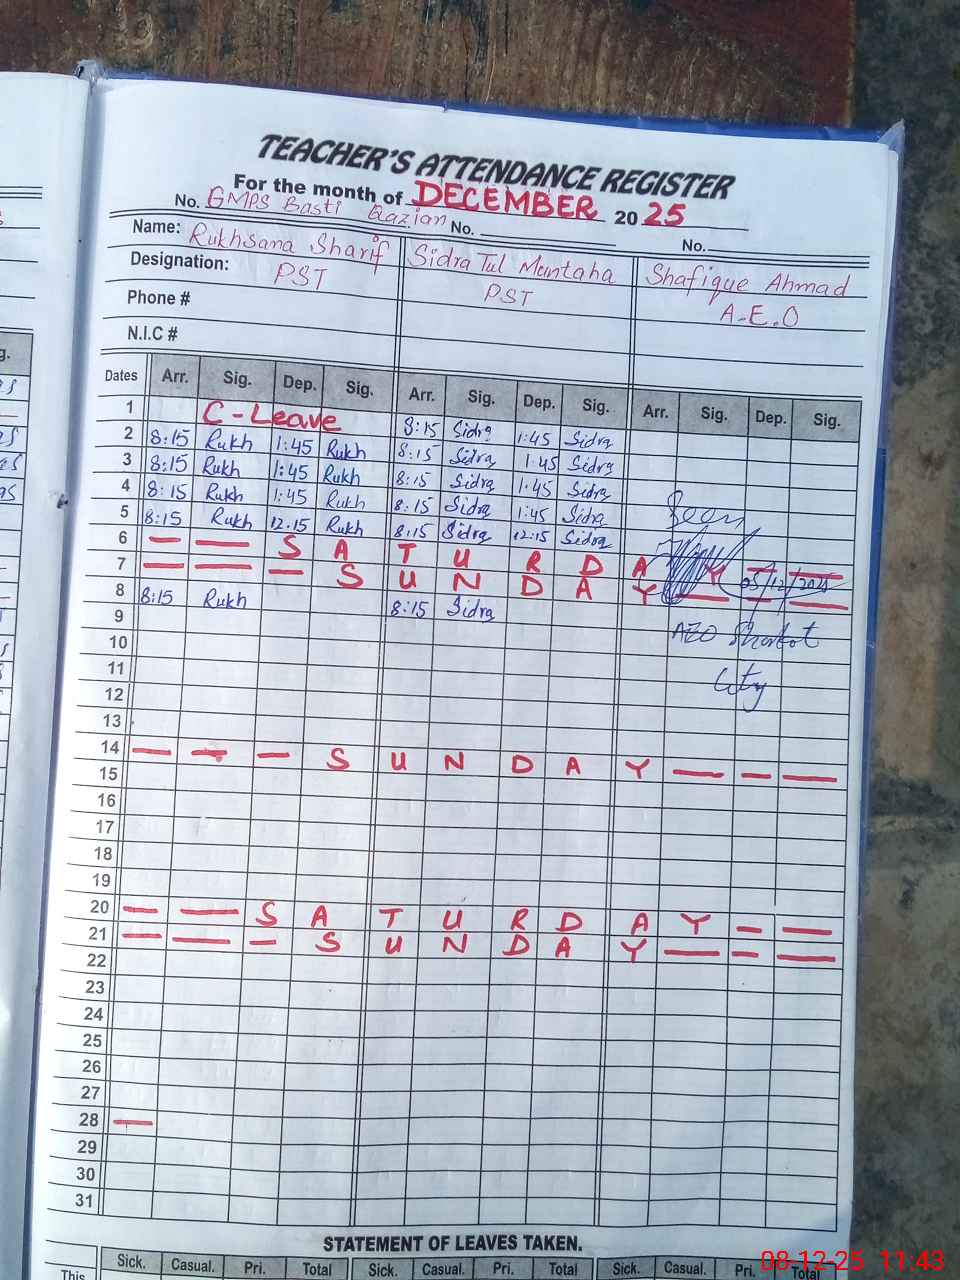 TEACHER'S ATTENDANCE REGISTER
For the month of DECEMBER 2025
No. GMPS Basti Qazian No. No.
Name: Rukhsana Sharif Sidra Tul Muntaha Shafique Ahmad
Designation: PST PST A.E.O
Phone #
N.I.C #
Dates Arr. Sig. Dep. Sig. Arr. Sig. Dep. Sig. Arr. Sig. Dep. Sig.
1 C-Leave 8:15 Sidra 1:45 Sidra
2 8:15 Rukh 1:45 Rukh 8:15 Sidra 1:45 Sidra
3 8:15 Rukh 1:45 Rukh 8:15 Sidra 1:45 Sidra
4 8:15 Rukh 1:45 Rukh 8:15 Sidra 1:45 Sidra
5 8:15 Rukh 12:15 Rukh 8:15 Sidra 12:15 Sidra Seen
6 — — S A T U R D A Y — —
7 — — — S U N D A Y — — —
05/12/2025
8 8:15 Rukh 8:15 Sidra
9 AEO Shorkot
10
11 City
12
13
14 — — — S U N D A Y — — —
15
16
17
18
19
20 — — S A T U R D A Y — —
21 — — — S U N D A Y — — —
22
23
24
25
26
27
28 —
29
30
31
STATEMENT OF LEAVES TAKEN.
This Sick. Casual. Pri. Total Sick. Casual. Pri. Total Sick. Casual. Pri. Total
08-12-25 11:43